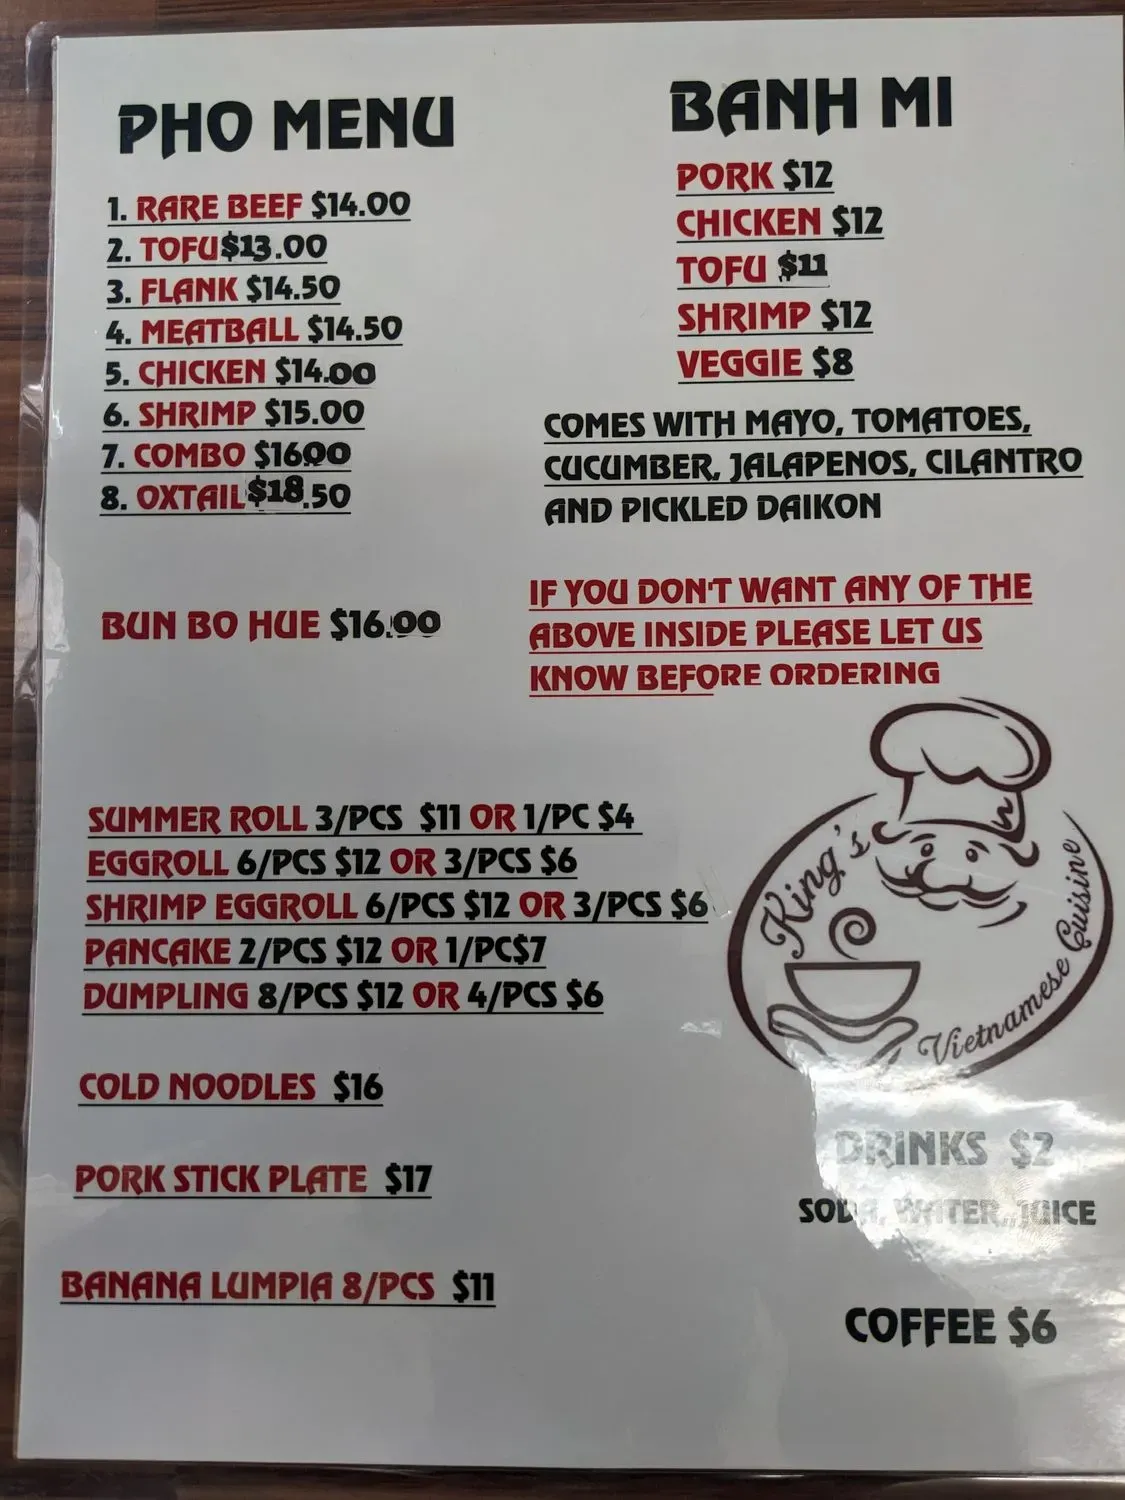 PHO MENU
1. RARE BEEF $14.00
2. TOFU $13.00
3. FLANK $14.50
4. MEATBALL $14.50
5. CHICKEN $14.00
6. SHRIMP $15.00
7. COMBO $16.00
8. OXTAIL $18.50
BUN BO HUE $16.00
BANH MI
PORK $12
CHICKEN $12
TOFU $11
SHRIMP $12
VEGGIE $8
COMES WITH MAYO, TOMATOES,
CUCUMBER, JALAPENOS, CILANTRO
AND PICKLED DAIKON
IF YOU DON'T WANT ANY OF THE
ABOVE INSIDE PLEASE LET US
KNOW BEFORE ORDERING
SUMMER ROLL 3/PCS $11 OR 1/PC $4
EGGROLL 6/PCS $12 OR 3/PCS $6
SHRIMP EGGROLL 6/PCS $12 OR 3/PCS $6
PANCAKE 2/PCS $12 OR 1/PC$7
DUMPLING 8/PCS $12 OR 4/PCS $6
COLD NOODLES $16
PORK STICK PLATE $17
BANANA LUMPIA 8/PCS $11
King's
Vietnamese Cuisine
DRINKS $2
SODA, WATER, JUICE
COFFEE $6